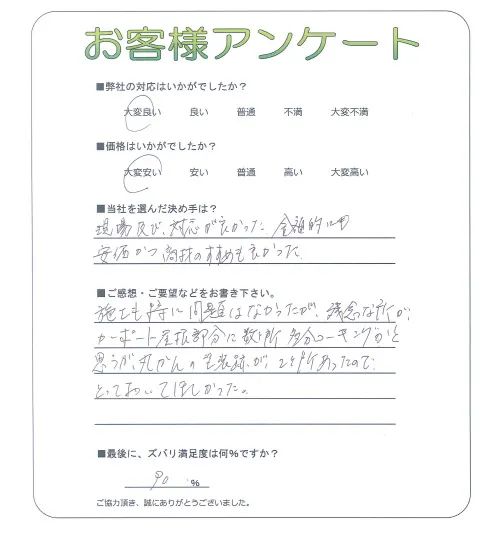 お客様アンケート
■弊社の対応はいかがでしたか？
大変良い 良い 普通 不満 大変不満
■価格はいかがでしたか？
大変安い 安い 普通 高い 大変高い
■当社を選んだ決め手は？
現場及び、対応が良かった 金額的にも
安価かつ 商材のすすめも良かった。
■ご感想・ご要望などをお書き下さい。
施工も特に問題はなかったが、残念な所が、
カーポート屋根部分に数ヶ所 多分コーキングかと
思うが、丸かんの 跡が、2ヶ所あったので
とっておいてほしかった。
■最後に、ズバリ満足度は何％ですか？
90 ％
ご協力頂き、誠にありがとうございました。